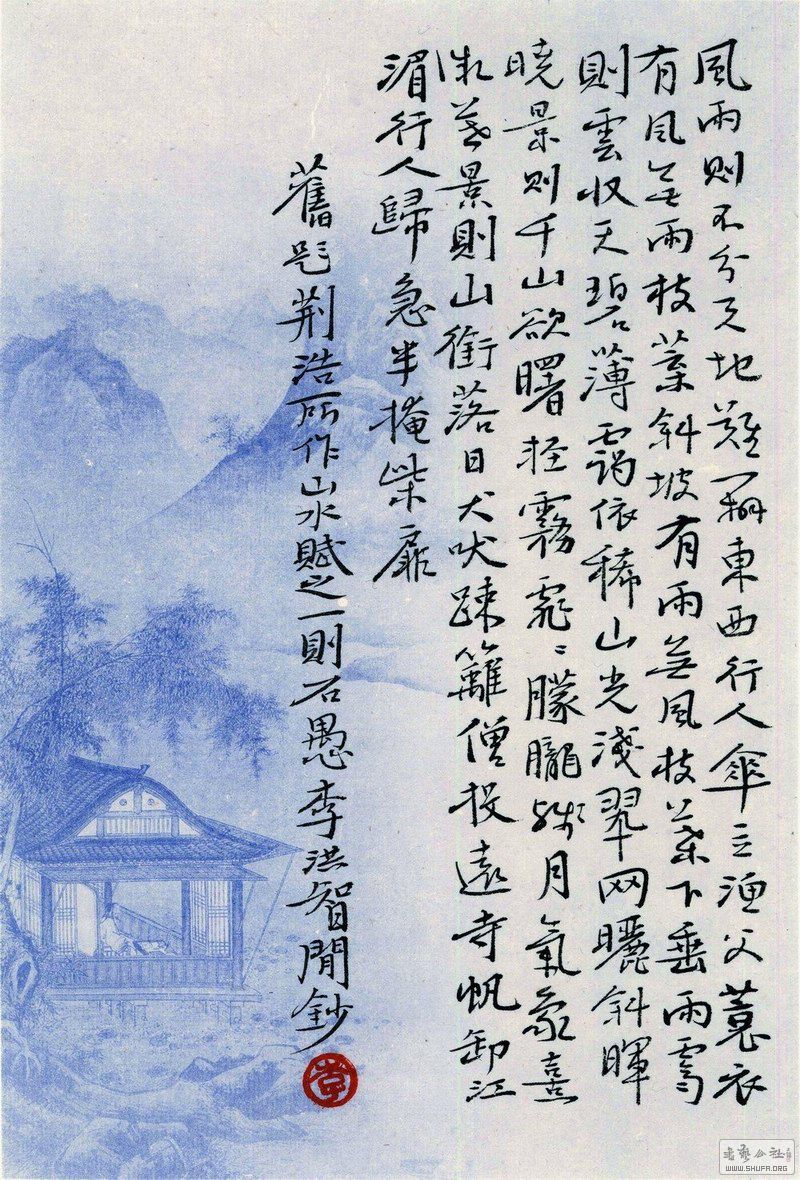 風雨則不分天地難辨東西行人傘立漁父蓑衣
有風無雨枝葉斜坡有雨無風枝葉下垂雨霽
則雲收天碧薄靄依稀山光淺翠网曬斜暉
曉景則千山欲曙輕霧霏〻朦朧殘月氣象熹
微暮景則山銜落日犬吠疎籬僧投遠寺帆卸江
湄行人歸急半掩柴扉
舊題荆浩所作山水賦之一則石愚李洪智閒鈔
書藝公社
WWW.SHUFA.ORG